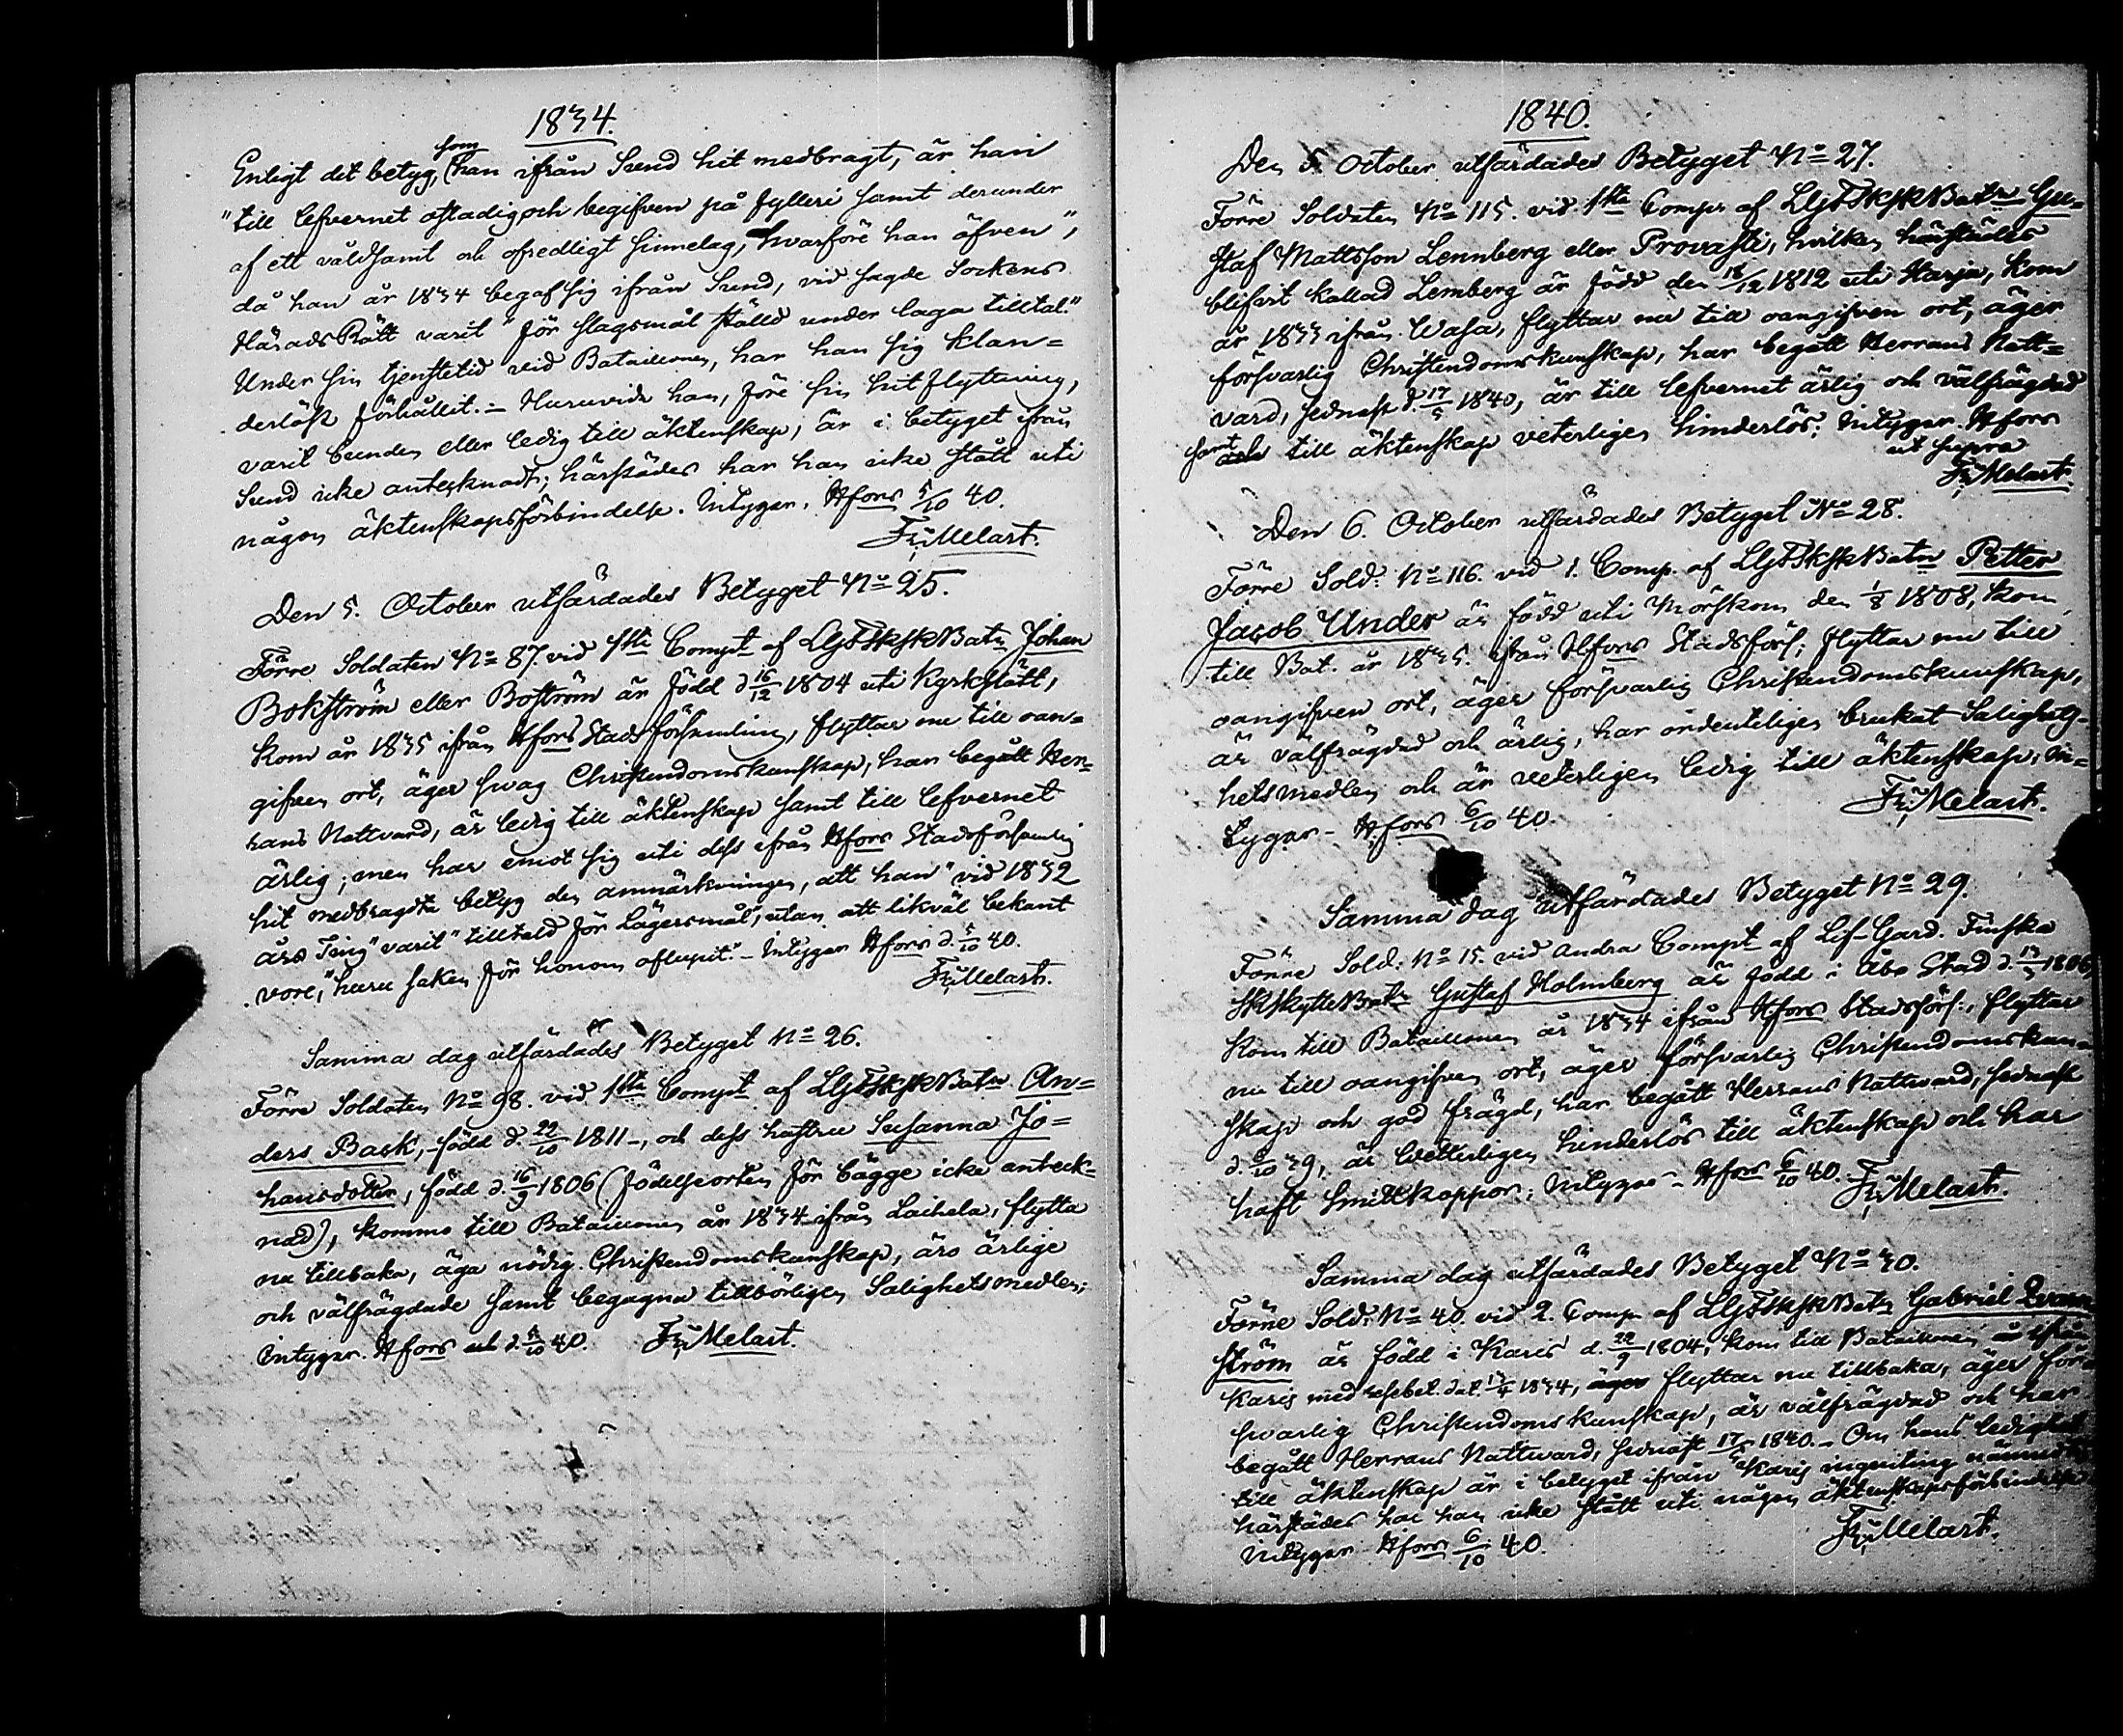 1834.
Enligt det betyg, som han ifrån Sund hit medbragt, är han
"till lefvernet ostadig och begifven på fylleri samt derunder
af ett våldsamt och ofredligt sinnelag, hvarföre han äfven",
då han år 1834 begaf sig ifrån Sund, vid sagde Sockens
HäradsRätt varit "för slagsmål ställd under laga tilltal."
Under sin tjenstetid vid Bataillonen, har han sig klan=
derlöst förhållit. – Huruvida han, före sin hitflyttning,
varit bunden eller ledig till äktenskap, är i betyget ifrån
Sund icke antecknadt; härstädes har han icke stått uti
någon äktenskapsförbindelse. Intygar. Hfors 5/10 40.
Fr: Melart.
Den 5. October utfärdades Betyget No 25.
Förre Soldaten No 87. vid 1sta Compt af LGFSkskBatn Johan
Bokström eller Boström är född d 16/12 1804 uti Kyrkslätt,
kom år 1835 ifrån Hfors Stadsförsamling, flyttar nu till oan=
gifven ort, äger svag Christendomskunskap, har begått Her=
rans Nattvard, är ledig till äktenskap samt till lefvernet
ärlig; men har emot sig uti dess ifrån Hfors Stadsförsamling
hit medbragdta betyg den anmärkningen, att han "vid 1832
års Ting" varit "tilltald för Lägersmål", utan att likväl bekant
vore, "huru saken för honom aflupit." – Intygar Hfors d. 5/10 40.
Fr: Melart.
Samma dag utfärdades Betyget No 26.
Förre Soldaten No 98. vid 1sta Compt af LGFSkskBatn An=
ders Back, – född d. 29/10 1811 –, och dess hustru Susanna Jo=
hansdotter, född d. 16/9 1806 (födelseorten för bägge icke anteck=
nad), komme till Bataillonen år 1834 ifrån Laihela, flytta
nu tillbaka, äga nödig Christendomskunskap, äro ärlige
och välfrägdade samt begagna tillbörligen Salighetsmedlen;
Intygar. Hfors d. 5/10 40. Fr: Melart.
1840.
Den 5 October utfärdades Betyget No 27.
Förre Soldaten No 115. vid 1sta Compn af LGFSkskBatn Gu=
staf Mattsson Lennberg eller Provasti, hvilken härstädes
blifvit kallad Lemberg är född den 18/12 1812 uti Harju, kom
år 1833 ifrån Wasa, flyttar nu till oangifven ort, äger
försvarlig Christendomskunskap, har begått Herrans Natt=
vard, sednast d. 17/5 1840, är till lefvernet ärlig och välfrägdad
samt till äktenskap veterligen hinderlös; Intygar Hfors
ut supra
Fr: Melart.
Den 6. October utfärdades Betyget No 28.
Förre Sold: No 116. vid 1. Comp. af LGFSkskBatn Petter
Jacob Under är född uti Mörskom den 1/8 1808, kom
till Bat. år 1835. ifrån Hfors Stadsförs; flyttar nu till
oangifven ort, äger försvarlig Christendomskunskap,
är välfrägdad och ärlig, har ordenteligen brukat Salighets-
hetsmedlen och är veterligen ledig till äktenskap; In=
tygar – Hfors 6/10 40.
Fr: Melart.
Samma dag utfärdades Betyget No 29.
Förre Sold: No 15. vid andra Compt af Lif-Gard. Finska
SkSkytteBatn Gustaf Holmberg är född i Åbo Stad d. 1806,
kom till Bataillonen år 1834 ifrån Hfors Stadsförs., flyttar
nu till oangifven ort, äger försvarlig Christendomskun=
skap och god frägd, har begått Herrans Nattvard, sednast
d. 6/10 39, är Wetterligen hinderlös till äktenskap och har
haft Smittkoppor; Intygar – Hfors 6/10 40. – Fr: Melart.
Samma dag utfärdades Betyget No 30.
Förre Sold: No 40. vid 2. Comp. af LGFSkskBatn Gabriel
ström är född i Karis d. 29/9 1804, kom till Bataillonen ifrån
Karis med resebet. dat. 1834, äger flyttar nu tillbaka, äger för=
svarlig Christendomskunskap, är välfrägdad och har
begått Herrans Nattvard, sednast 17/5 1840. – Om hans ledighet
till äktenskap är i betyget ifrån Karis ingenting nämndt;
härstädes har han icke stått uti någon äktenskapsförbindelse.
Intygar Hfors 6/10 40.
Fr: Melart.